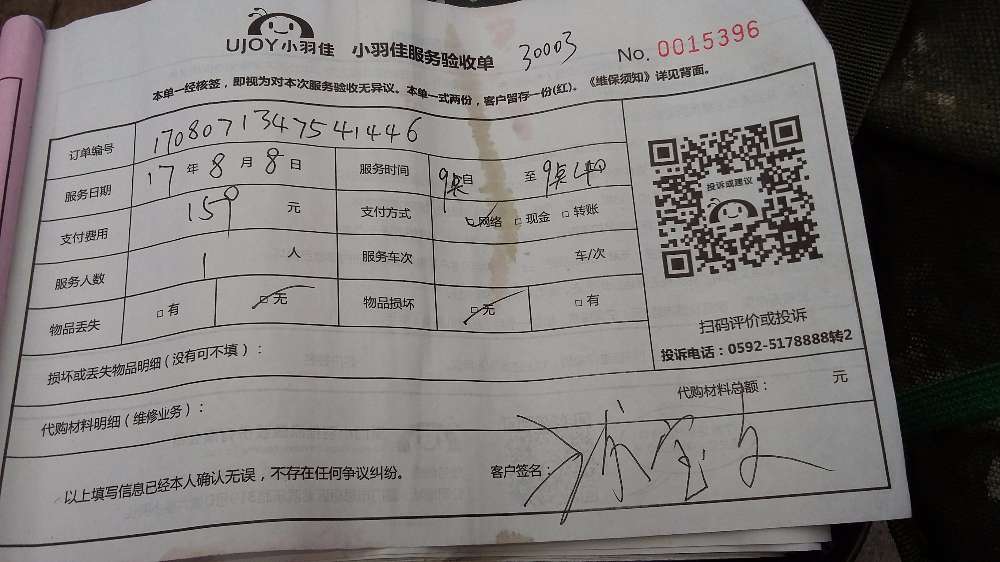 UJOY小羽佳 小羽佳服务验收单 30003 No. 0015396
本单一经核签，即视为对本次服务验收无异议。本单一式两份，客户留存一份(红)。《维保须知》详见背面。
订单编号 1708071347541446
服务日期 17 年 8 月 8 日 服务时间 9点 自 至 9点40
支付费用 159 元 支付方式 □网络 □现金 □转账
服务人数 1 人 服务车次 车/次
物品丢失 □有 □无 物品损坏 □无 □有
投诉或建议
扫码评价或投诉
投诉电话：0592-5178888转2
损坏或丢失物品明细（没有可不填）：
代购材料明细（维修业务）： 代购材料总额： 元
以上填写信息已经本人确认无误，不存在任何争议纠纷。 客户签名：